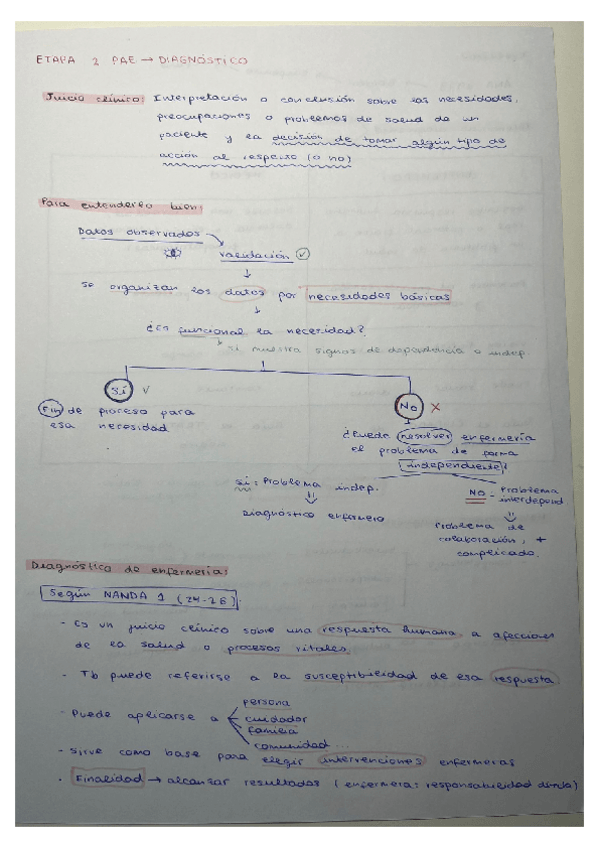 ETAPA 2 PAE → DIAGNÓSTICO
Juicio clínico: Interpretación o conclusión sobre las necesidades,
preocupaciones o problemas de salud de un
paciente y la decisión de tomar algún tipo de
acción al respecto (o no)
Para entenderlo bien:
Datos observados
validación
↓
Se organizan los datos por necesidades básicas
↓
¿Es funcional la necesidad?
↳ si muestra signos de dependencia o indep.
Sí ✓
No X
Fin de proceso para
esa necesidad
¿Puede resolver enfermería
el problema de forma
independiente?
si: Problema indep.
⇓
Diagnóstico enfermero
NO - Problema
interdepend
⇓
Problema de
colaboración, +
complicado.
Diagnóstico de enfermería:
Según NANDA I (24-26).
- Es un juicio clínico sobre una respuesta humana a afecciones
de la salud o procesos vitales.
- Tb puede referirse a la susceptibilidad de esa respuesta.
- Puede aplicarse a
persona
cuidador
familia
comunidad...
- Sirve como base para elegir intervenciones enfermeras
· Finalidad → alcanzar resultados (enfermera: responsabilidad directa)